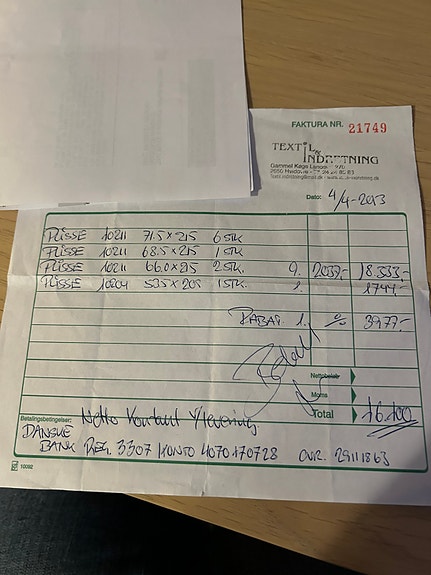 FAKTURA NR. 21749
TEXTIL & INDRETNING
Gammel Køge Landevej
2650 Hvidovre
Dato: 4/4-2013
PLISSE 10211 71.5 x 215 6 STK
PLISSE 10211 68.5 x 215 1 STK
PLISSE 10211 66.0 x 215 2 STK 9. 2037,- 18.333,-
PLISSE 10204 53.5 x 205 1 STK 1 1744,-
RABAT 1. % 3977,-
Betalt
Nettobeløb
Moms
Total 16.100
Betalingsbetingelser: Netto Kontant v/levering
DANSKE
BANK REG. 3307 KONTO 4070170728 CVR. 29111863
10092